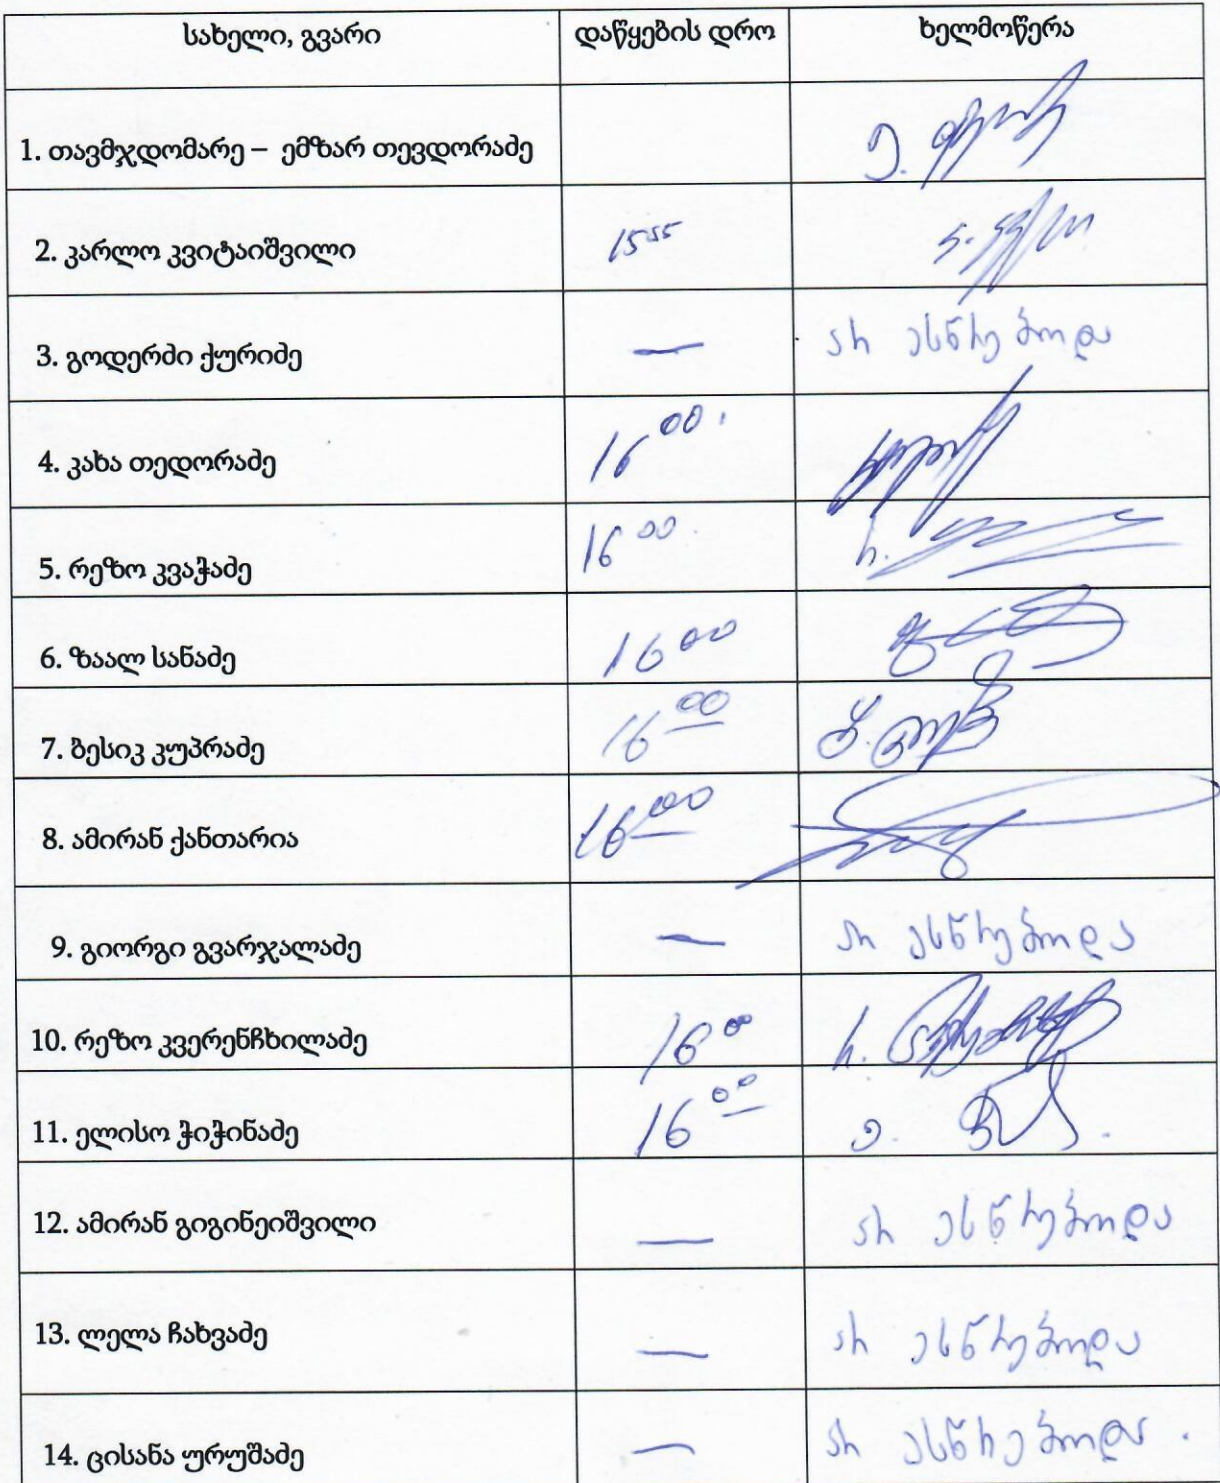 სახელი, გვარი დაწყების დრო ხელმოწერა
1. თავმჯდომარე – ემზარ თევდორაძე
2. კარლო კვიტაიშვილი 15⁵⁵
3. გოდერძი ქურიძე — არ ესწრებოდა
4. კახა თედორაძე 16⁰⁰
5. რეზო კვაჭაძე 16⁰⁰
6. ზაალ სანაძე 16⁰⁰
7. ბესიკ კუპრაძე 16⁰⁰
8. ამირან ქანთარია 16⁰⁰
9. გიორგი გვარჯალაძე — არ ესწრებოდა
10. რეზო კვერენჩხილაძე 16⁰⁰
11. ელისო ჭიჭინაძე 16⁰⁰
12. ამირან გიგინეიშვილი — არ ესწრებოდა
13. ლელა ჩახვაძე — არ ესწრებოდა
14. ცისანა ურუშაძე — არ ესწრებოდა.